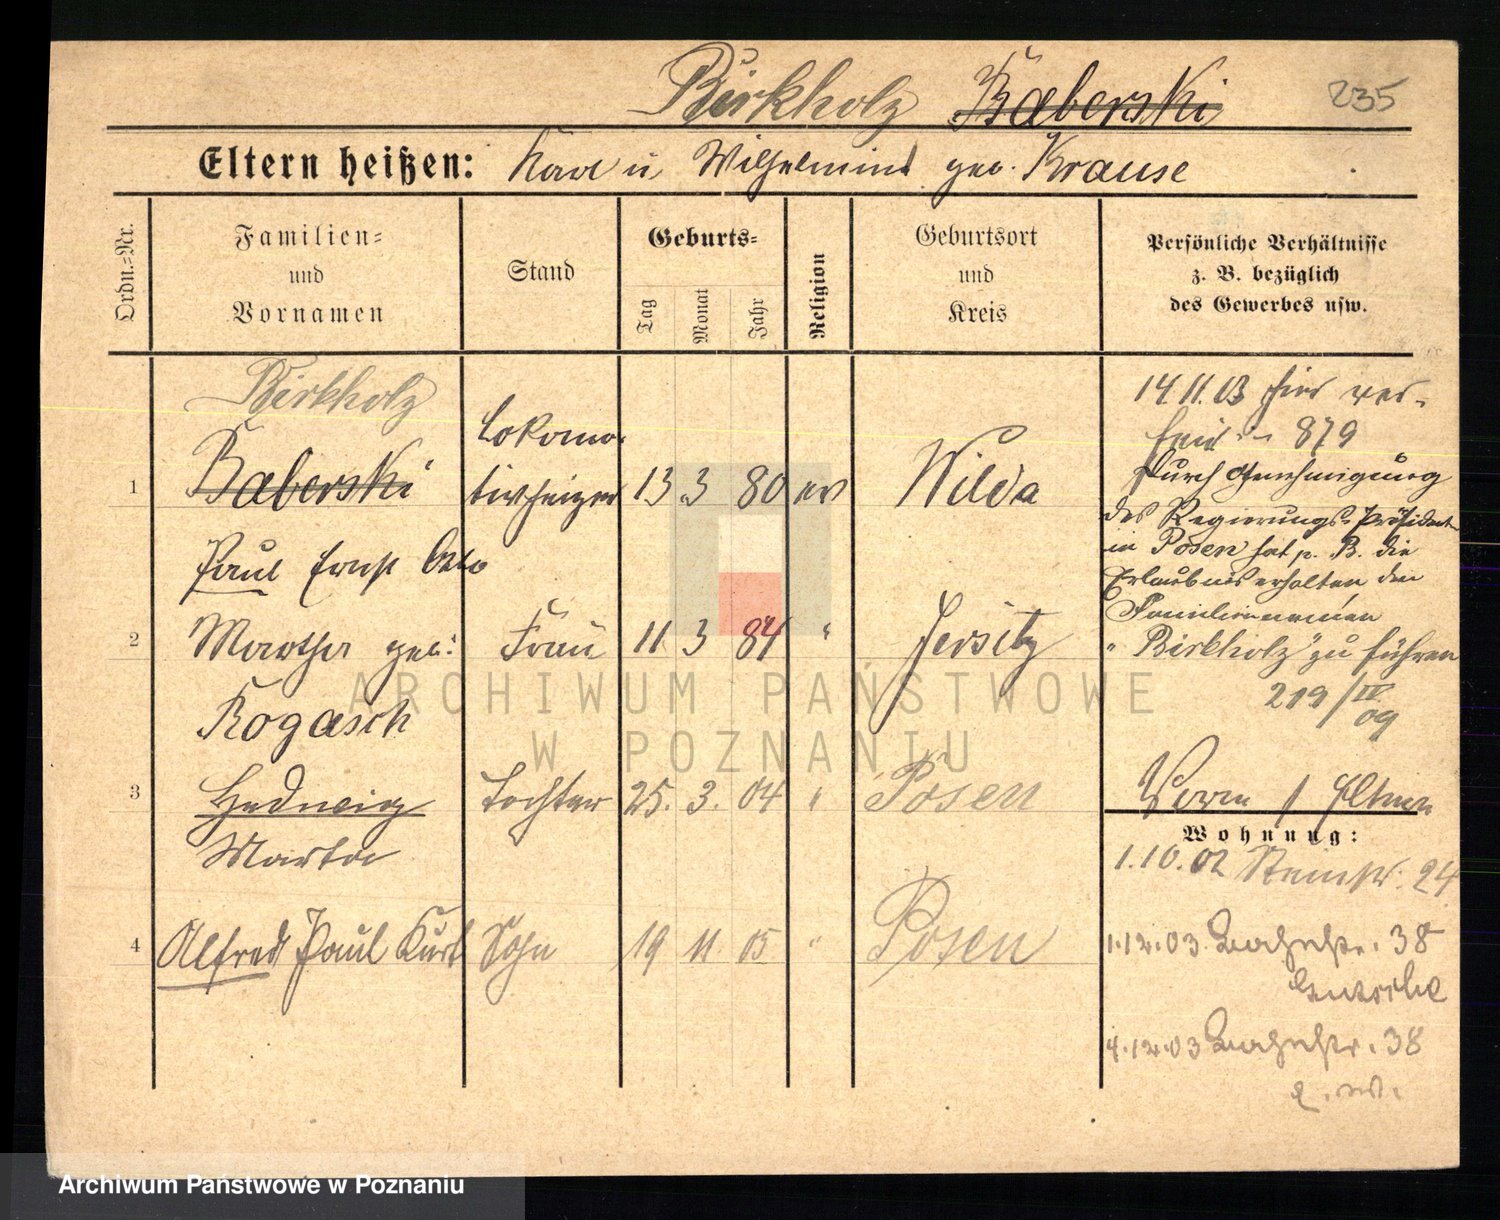 Birkholz Baberski 235
Eltern heißen: Karl u Wilhelmine geb. Krause
Ordn.=Nr.
Familien=
und
Vornamen
Stand
Geburts=
Tag
Monat
Jahr
Religion
Geburtsort
und
Kreis
Persönliche Verhältnisse
z. B. bezüglich
des Gewerbes usw.
Birkholz
1 Baberski
Paul Ernst Otto
Lokomo-
tivheizer
13 3 80 ev
Wilda
14.11.03 hier
879
Durch Genehmigung
des Regierungs-Präsident
in Posen hat p. B. die
Erlaubnis erhalten den
Familiennamen
"Birkholz" zu führen
219/IV
09
2 Martha geb:
Rogasch
Frau
11. 3 84 "
Jersitz
3 Hedwig
Marta
Tochter
25. 3. 04 "
Posen
Verm f Eltern
4 Alfred Paul Kurt
Sohn
19 11 05 "
Posen
Wohnung:
1.10.02 24
1.12.03 38
4.12.03 38
ARCHIWUM PAŃSTWOWE
W POZNANIU
Archiwum Państwowe w Poznaniu